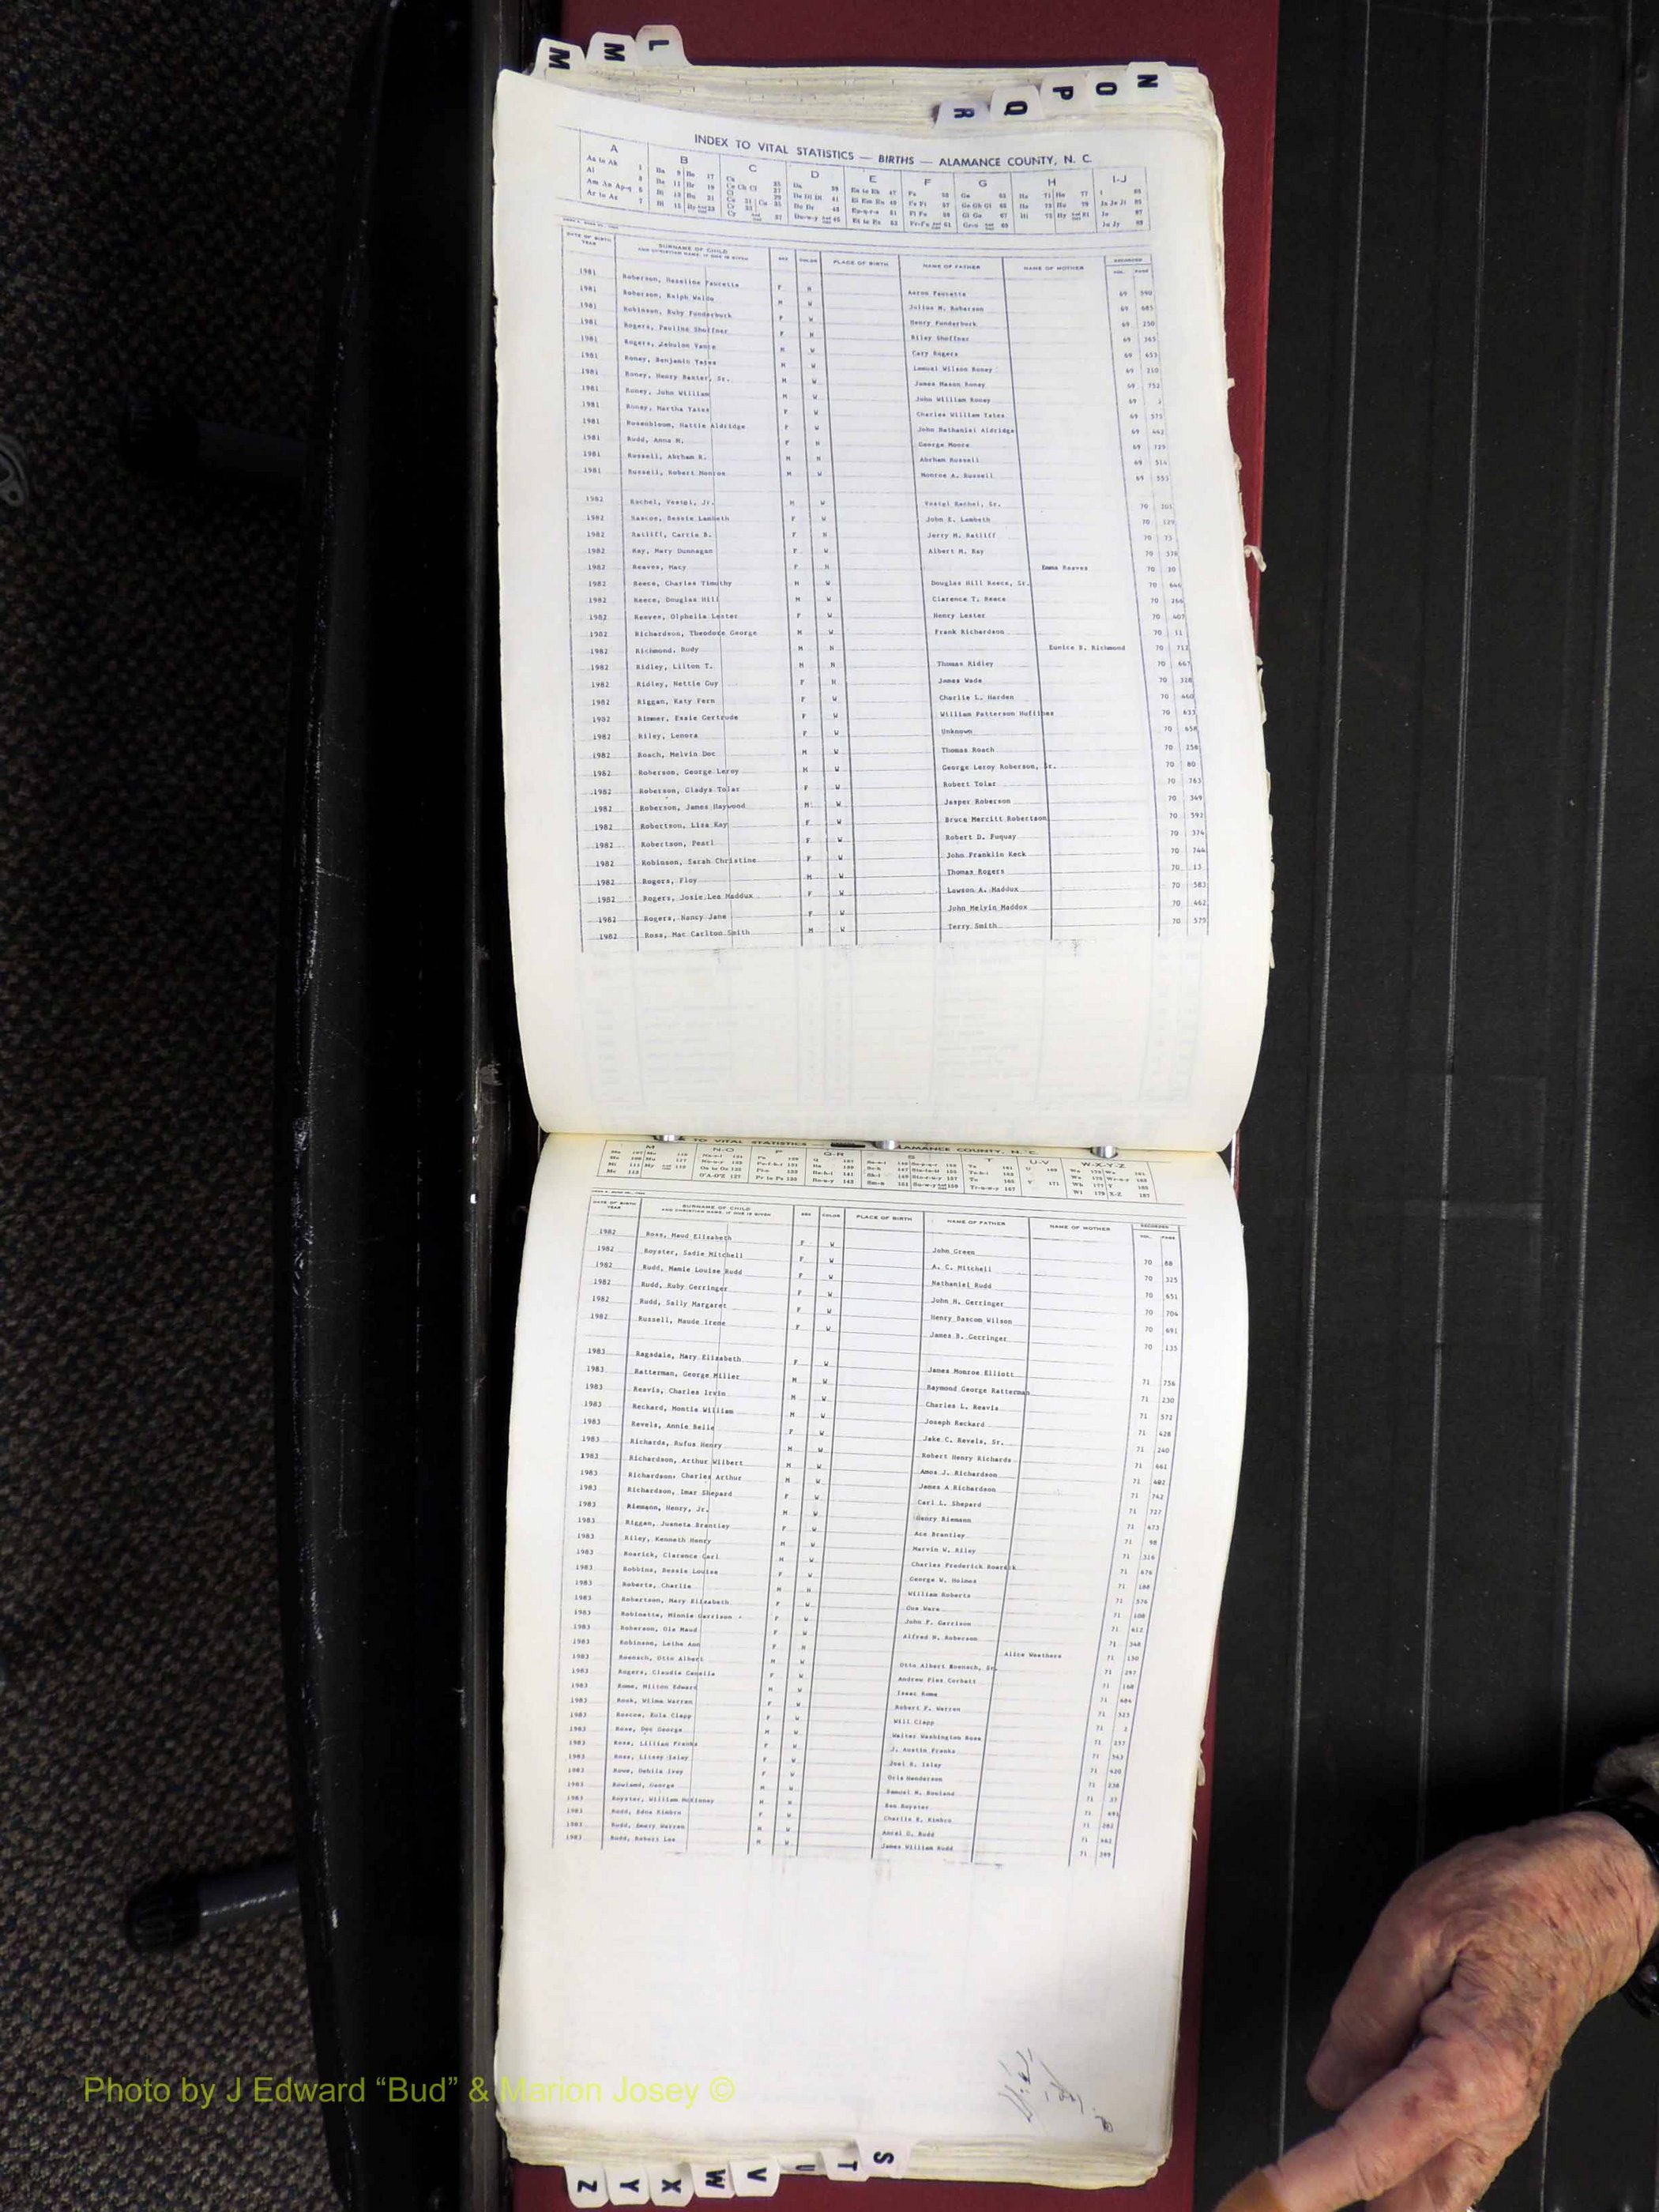 M M L
N O P Q R
INDEX TO VITAL STATISTICS — BIRTHS — ALAMANCE COUNTY, N. C.
A B C D E F G H I-J
DATE OF BIRTH YEAR SURNAME OF CHILD AND CHRISTIAN NAME, IF ONE IS GIVEN SEX COLOR PLACE OF BIRTH NAME OF FATHER NAME OF MOTHER RECORDED VOL. PAGE
1981 Roberson, Haseline Faucette F N Aaron Faucette 69 590
1981 Roberson, Ralph Waldo M W Julius M. Roberson 69 685
1981 Robinson, Ruby Funderburk F W Henry Funderburk 69 250
1981 Rogers, Pauline Shoffner F N Riley Shoffner 69 365
1981 Rogers, Zebulon Vance M W Cary Rogers 69 653
1981 Roney, Benjamin Yates M W Lemuel Wilson Roney 69 210
1981 Roney, Henry Baxter, Sr. M W James Mason Roney 69 752
1981 Roney, John William M W John William Roney 69
1981 Roney, Martha Yates F W Charles William Yates 69 575
1981 Rosenbloom, Hattie Aldridge F W John Nathaniel Aldridge 69 442
1981 Rudd, Anna M. F N George Moore 69 729
1981 Russell, Abrham R. M N Abrham Russell 69 514
1981 Russell, Robert Monroe M W Monroe A. Russell 69 553
1982 Rachel, Vestel, Jr. M W Vestel Rachel, Sr. 70 201
1982 Rascoe, Bessie Lambeth F W John E. Lambeth 70 129
1982 Ratliff, Carrie B. F N Jerry M. Ratliff 70 73
1982 Ray, Mary Dunnagan F W Albert M. Ray 70 378
1982 Reaves, Macy F N Emma Reaves 70 20
1982 Reece, Charles Timothy M W Douglas Hill Reece, Sr. 70 646
1982 Reece, Douglas Hill M W Clarence T. Reece 70 266
1982 Reeves, Olphelia Lester F W Henry Lester 70 407
1982 Richardson, Theodore George M W Frank Richardson 70 11
1982 Richmond, Rudy M N Eunice B. Richmond 70 712
1982 Ridley, Lilton T. M N Thomas Ridley 70 667
1982 Ridley, Nettie Guy F N James Wade 70 328
1982 Riggan, Katy Fern F W Charlie L. Harden 70 460
1982 Rimmer, Essie Gertrude F W William Patterson Huffines 70 633
1982 Riley, Lenora F W Unknown 70 658
1982 Roach, Melvin Doc M W Thomas Roach 70 258
1982 Roberson, George Leroy M W George Leroy Roberson, Sr. 70 80
1982 Roberson, Gladys Tolar F W Robert Tolar 70 763
1982 Roberson, James Haywood M W Jasper Roberson 70 349
1982 Robertson, Liza Kay F W Bruce Merritt Robertson 70 592
1982 Robertson, Pearl F W Robert D. Fuquay 70 374
1982 Robinson, Sarah Christine F W John Franklin Keck 70 744
1982 Rogers, Floy M W Thomas Rogers 70 15
1982 Rogers, Josie Lea Maddux F W Lawson A. Maddux 70 583
1982 Rogers, Nancy Jane F W John Melvin Maddox 70 462
1982 Ross, Mac Carlton Smith M W Terry Smith 70 579
TO VITAL STATISTICS — ALAMANCE COUNTY, N. C.
M N-O P Q-R S T U-V W-X-Y-Z
DATE OF BIRTH YEAR SURNAME OF CHILD AND CHRISTIAN NAME, IF ONE IS GIVEN SEX COLOR PLACE OF BIRTH NAME OF FATHER NAME OF MOTHER RECORDED VOL. PAGE
1982 Ross, Maud Elizabeth F W John Green 70 88
1982 Royster, Sadie Mitchell F W A. C. Mitchell 70 325
1982 Rudd, Mamie Louise Rudd F W Nathaniel Rudd 70 651
1982 Rudd, Ruby Gerringer F W John H. Gerringer 70 704
1982 Rudd, Sally Margaret F W Henry Bascom Wilson 70 691
1982 Russell, Maude Irene F W James B. Gerringer 70 135
1983 Ragsdale, Mary Elizabeth F W James Monroe Elliott 71 756
1983 Ratterman, George Miller M W Raymond George Ratterman 71 230
1983 Reavis, Charles Irvin M W Charles L. Reavis 71 572
1983 Reckard, Montie William M W Joseph Reckard 71 428
1983 Revels, Annie Belle F W Jake C. Revels, Sr. 71 240
1983 Richards, Rufus Henry M W Robert Henry Richards 71 661
1983 Richardson, Arthur Wilbert M W Amos J. Richardson 71 402
1983 Richardson, Charles Arthur M W James A Richardson 71 742
1983 Richardson, Imar Shepard F W Carl L. Shepard 71 727
1983 Riemann, Henry, Jr. M W Henry Riemann 71 473
1983 Riggan, Juaneta Brantley F W Ace Brantley 71 98
1983 Riley, Kenneth Henry M W Marvin W. Riley 71 316
1983 Roarick, Clarence Carl M W Charles Frederick Roarick 71 676
1983 Robbins, Bessie Louise F W George W. Holmes 71 188
1983 Roberts, Charlie M N William Roberts 71 576
1983 Robertson, Mary Elizabeth F W Gus Ware 71 100
1983 Robinette, Minnie Garrison F W John F. Garrison 71 612
1983 Roberson, Ola Maud F W Alfred H. Roberson 71 348
1983 Robinson, Letha Ann F N Alice Weathers 71 130
1983 Roensch, Otto Albert M W Otto Albert Roensch, Sr. 71 297
1983 Rogers, Claudia Canelia F W Andrew Pies Corbett 71 168
1983 Rome, Milton Edward M W Isaac Rome 71 684
1983 Rook, Wilma Warren F W Robert F. Warren 71 323
1983 Roscoe, Eula Clapp F W Will Clapp 71 2
1983 Rose, Doc George M W Walter Washington Rose 71 257
1983 Ross, Lillian Franks F W J. Austin Franks 71 563
1983 Ross, Litsey Isley F W Joel R. Isley 71 420
1983 Rowe, Dehlia Ivey F W Oris Henderson 71 238
1983 Rowland, George M W Samuel M. Rowland 71 37
1983 Royster, William McKinney M N Ben Royster 71 691
1983 Rudd, Edna Kimbro F W Charlie E. Kimbro 71 202
1983 Rudd, Emery Warren M W Ansel G. Rudd 71 662
1983 Rudd, Robert Lee M W James William Rudd 71 399
Photo by J Edward “Bud” & Marion Josey ©
Z Y X W V U T S